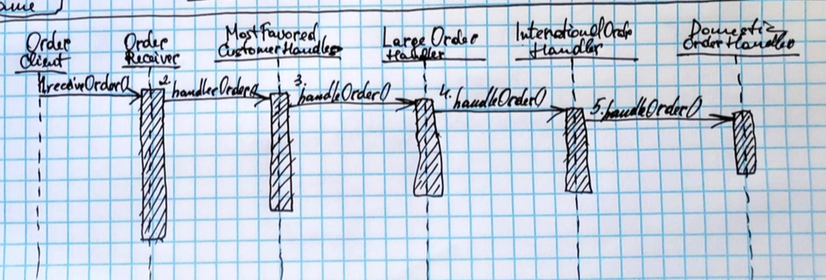 Order
Client
Order
Receiver
Most Favored
Customer Handler
Large Order
Handler
InterntionalOrder
Handler
Domestic
Order Handler
1.receiveOrder()
2. handleOrder()
3. handleOrder()
4. handleOrder()
5. handleOrder()